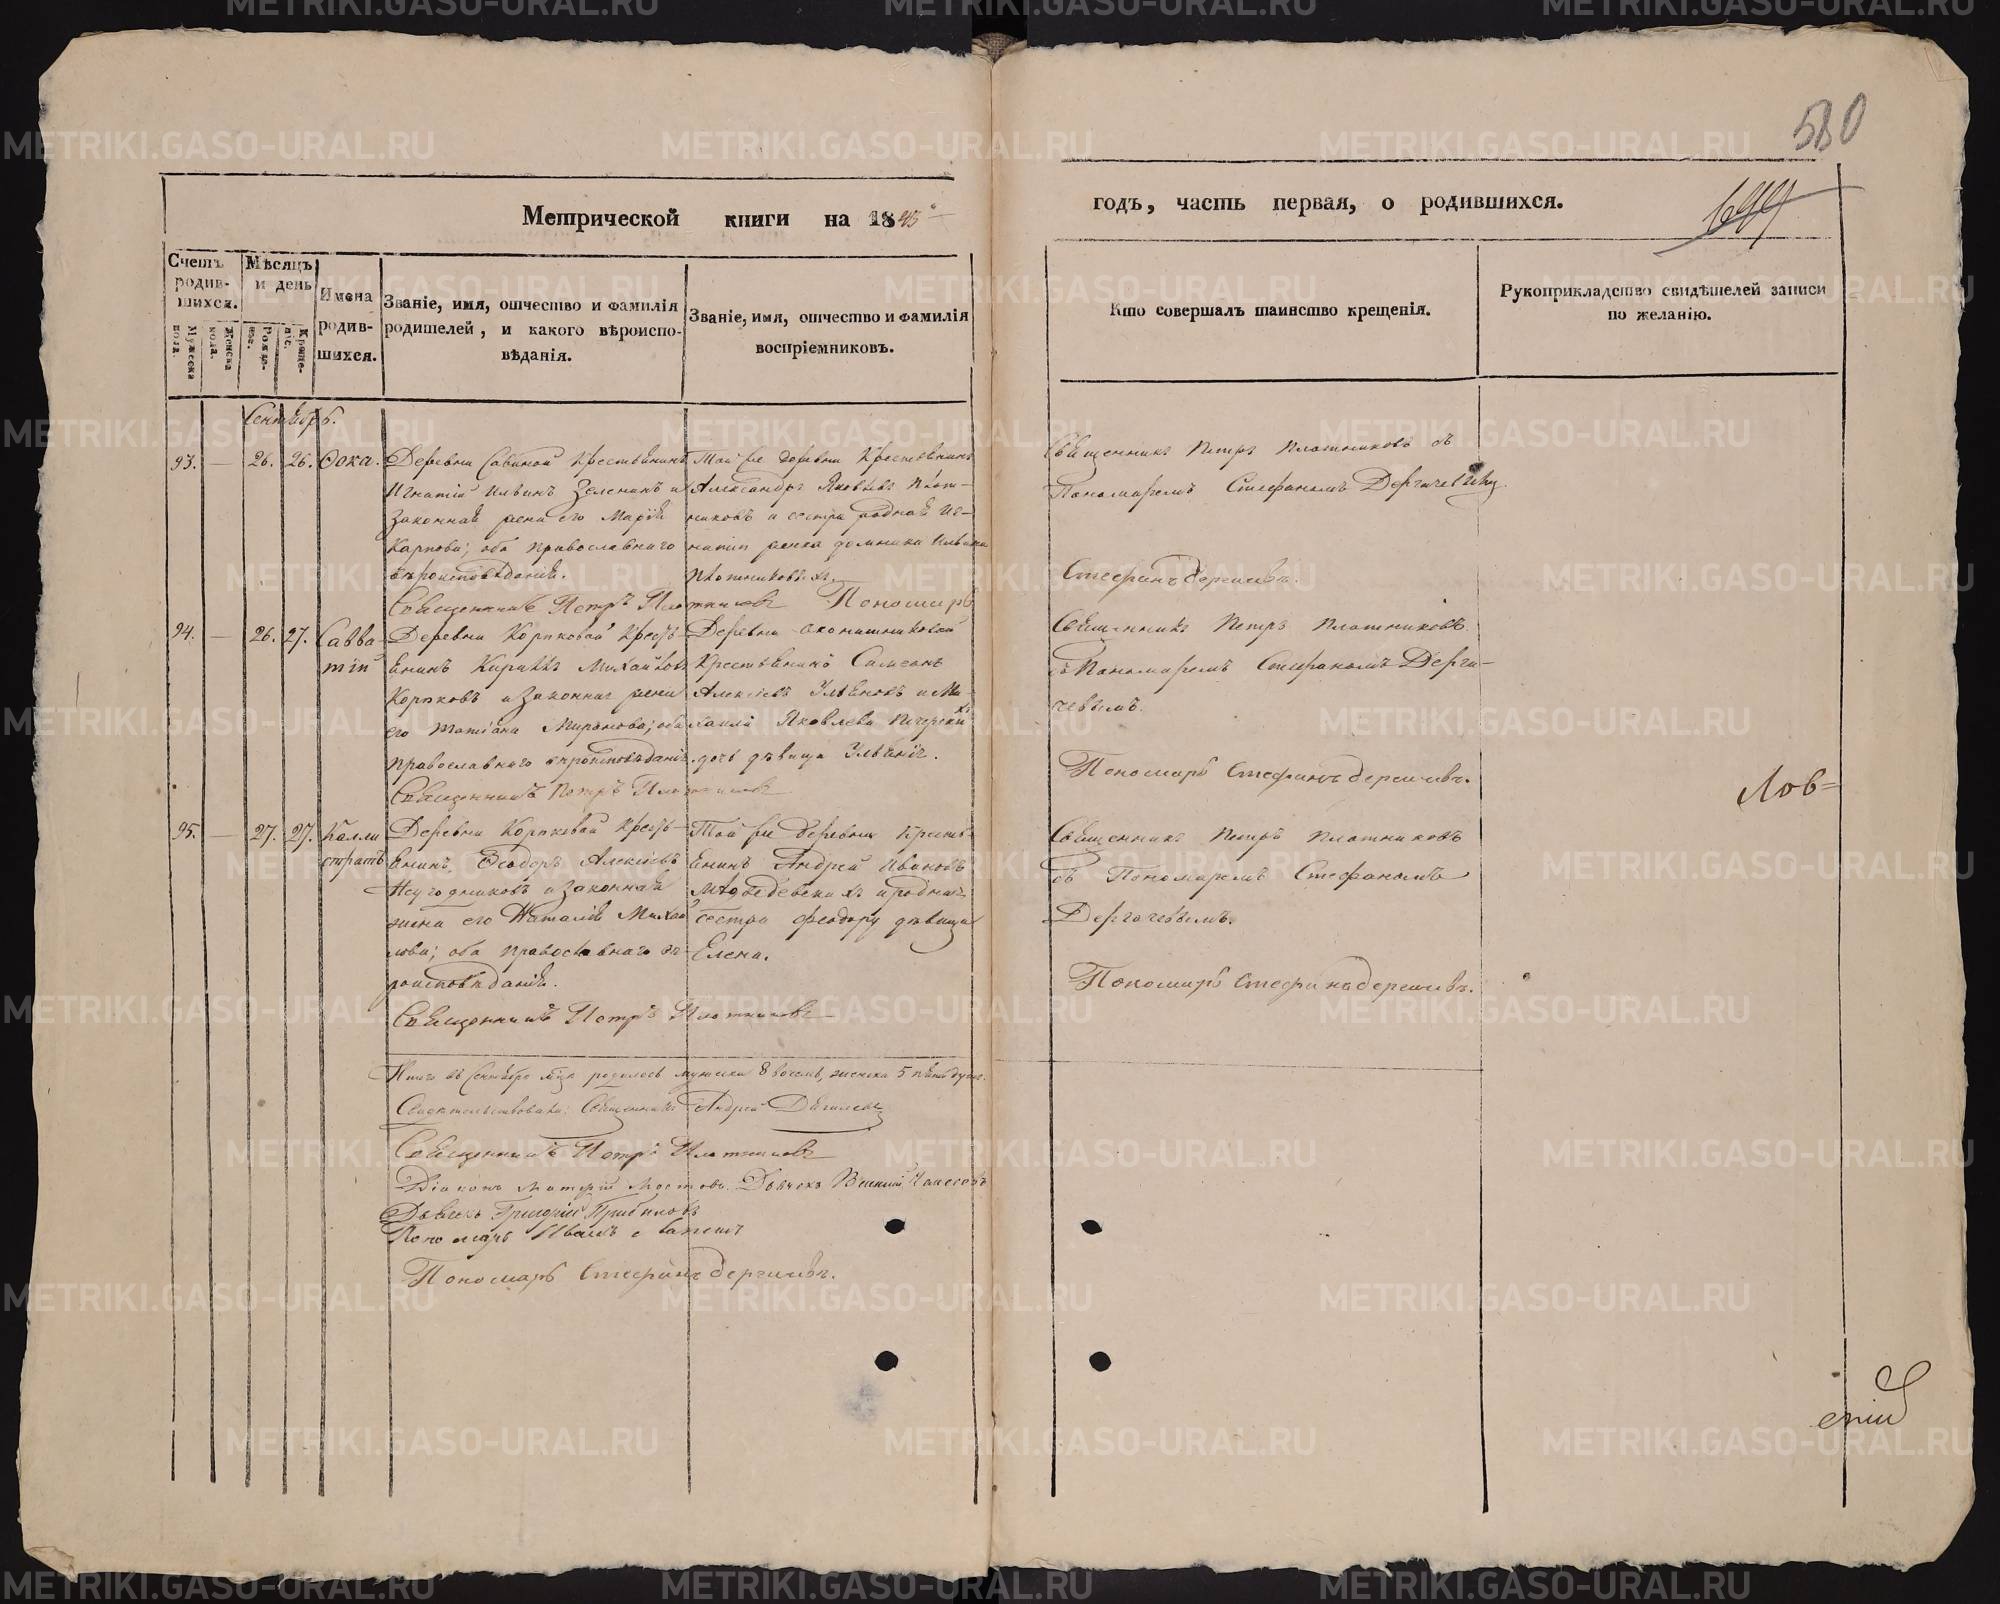 580
699
Метрической книги на 1845
годъ, часть первая, о родившихся.
Счетъ родившихся.
Мужеска пола.
Женска пола.
Мѣсяцъ и день
Рожденіе.
Крещеніе.
Имена родившихся.
Званіе, имя, отчество и фамилія родителей, и какого вѣроисповѣданія.
Званіе, имя, отчество и фамилія воспріемниковъ.
Кто совершалъ таинство крещенія.
Рукоприкладство свидѣтелей записи по желанію.
Сентябрь.
93. — 26. 26. Ѳока.
Деревни Савиной Крестьянинъ
Игнатій Ильинъ Зеленинъ и
законная жена его Марія
Карпова; оба православнаго
вѣроисповѣданія.
Той же деревни Крестьянинъ
Александръ Яковлевъ Плот-
никовъ и сестра родная Иг-
натія жена Домника Ильина
Плотниковыхъ.
Священникъ Петръ Плотниковъ
Пономарь
Священникъ Петръ Плотниковъ съ
Пономаремъ Стефаномъ Дергачевымъ.
Стефанъ Дергачевъ.
94. — 26. 27. Савва-
тій
Деревни Корюковой Кресть-
янинъ Кириллъ Михайловъ
Корюковъ и законная жена
его Татіана Миронова; оба
православнаго вѣроисповѣданія.
Деревни
Крестьянинъ Симеонъ
Алексѣевъ и Ми-
хаила Яковлева
дочь дѣвица Ульянія.
Священникъ Петръ Плотниковъ
Священникъ Петръ Плотниковъ
съ Пономаремъ Стефаномъ Дерга-
чевымъ.
Пономарь Стефанъ Дергачевъ.
Лов=
95. — 27. 27. Калли
стратъ
Деревни Корюковой Кресть-
янинъ Ѳеодоръ Алексѣевъ
Неугодниковъ и законная
жена его Наталія Михай
лова; оба православнаго вѣ-
роисповѣданія.
Той же деревни Кресть-
янинъ Андрей Ивановъ
Медведевскихъ и родная
сестра Феодору дѣвица
Елена.
Священникъ Петръ Плотниковъ
Священникъ Петръ Плотниковъ
съ Пономаремъ Стефаномъ
Дергачевымъ.
Пономарь Стефанъ Дергачевъ.
Итого въ Сентябрѣ мцѣ родилось мужска 8 восемь, женска 5 пять душъ.
Свидѣтельствовали: Священникъ Андрей
Священникъ Петръ Плотниковъ
Діаконъ Матфій Мостовъ. Дьячекъ
Дьячекъ Григорій Прибылевъ
Пономарь Иванъ
Пономарь Стефанъ Дергачевъ.
METRIKI.GASO-URAL.RU